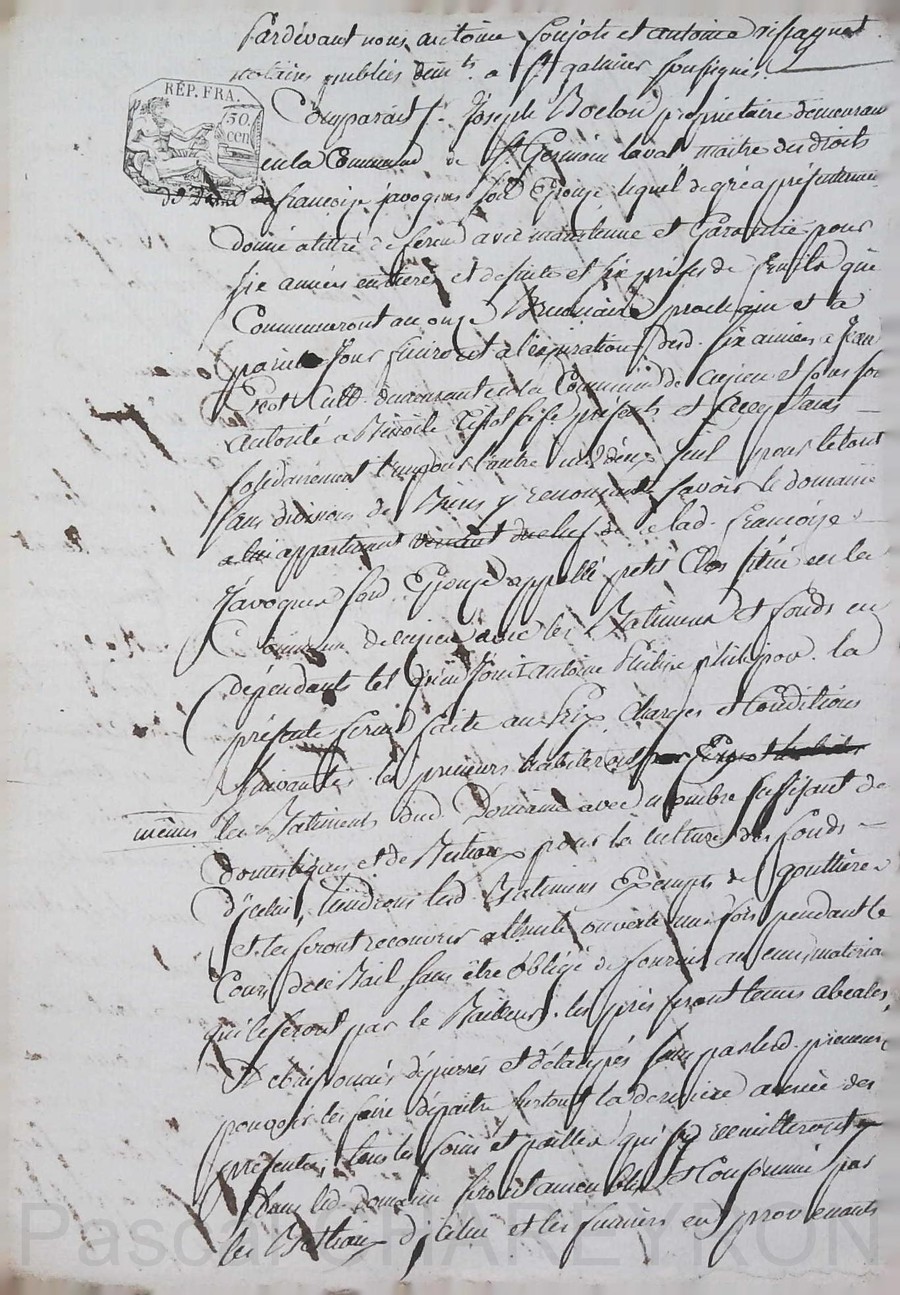 Pardevant nous antoine et antoine
notaires publics dem.ts a St galmier soussignés
RÉP. FRA.
50.
cen
Comparait S. Joseph propriétaire demeurant
en la Commune de St Germain laval maitre des droits
de francoise javogues son Epouze lequel de gré a présentement
donné a titre de ferme avec maintenue et Garantie pour
six années entieres et de suite et six prises de fruits qui
Commenceront au onze Brumaire prochain et a
pareil Jour finiront a l'expiration desd. six années a Jean
Cult. demeurant en la Commune de et sous son
autorité a présents et acceptants
solidairement l'un pour l'autre un d'eux seul pour le tout
sans division de Biens y renoncants savoir le domaine
a lui appartenant venant du chef de lad. francoise
Javogues son Epouze appellé petit Clos situé en la
Commune de avec les Batiments et fonds en
dépendants tel qu'en Jouit antoine la
présente ferme faite aux Prix Charges et Conditions
suivantes les preneurs habiteront
mêmes les Batiments dud. Domaine avec nombre suffisant de
domestiques et de Bestiaux pour la culture des fonds
d'icelui, tiendront lesd. Batimens Exempts de gouttieres
et les feront recouvrir a thuile ouverte une fois pendant le
Cours de ce Bail, sans être obligé de fournir aucuns materiaux
qui le seront par le Bailleur. les prés seront tenus
épierrés et détaupés sans que lesd. preneurs
pouvoir les faire dépaitre surtout la derniere année des
présentes, tous les foins et pailles qui se recuilleront
dans led. domaine seront et Consommé par
les Bestiaux d'icelui et les fumiers en provenants
Pascal CHAREYRON